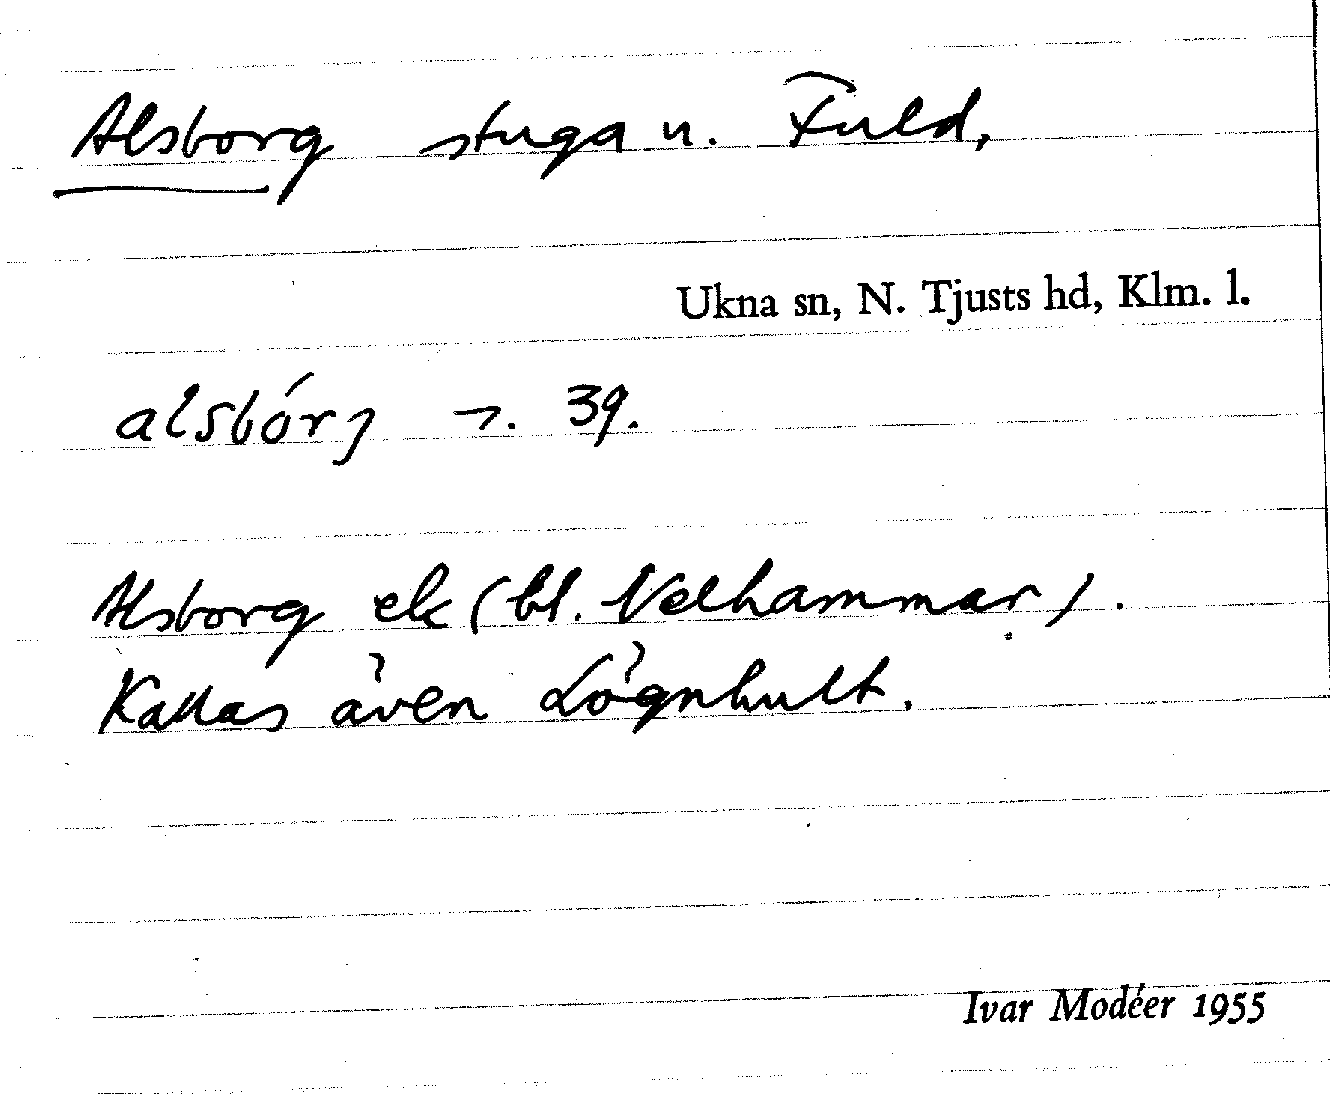 Alsborg stuga u. Fuld,
Ukna sn, N. Tjusts hd, Klm. l.
alsbórj 39.
Alsborg ek (bl. Velhammar).
Kallas även Lögnhult.
Ivar Modéer 1955